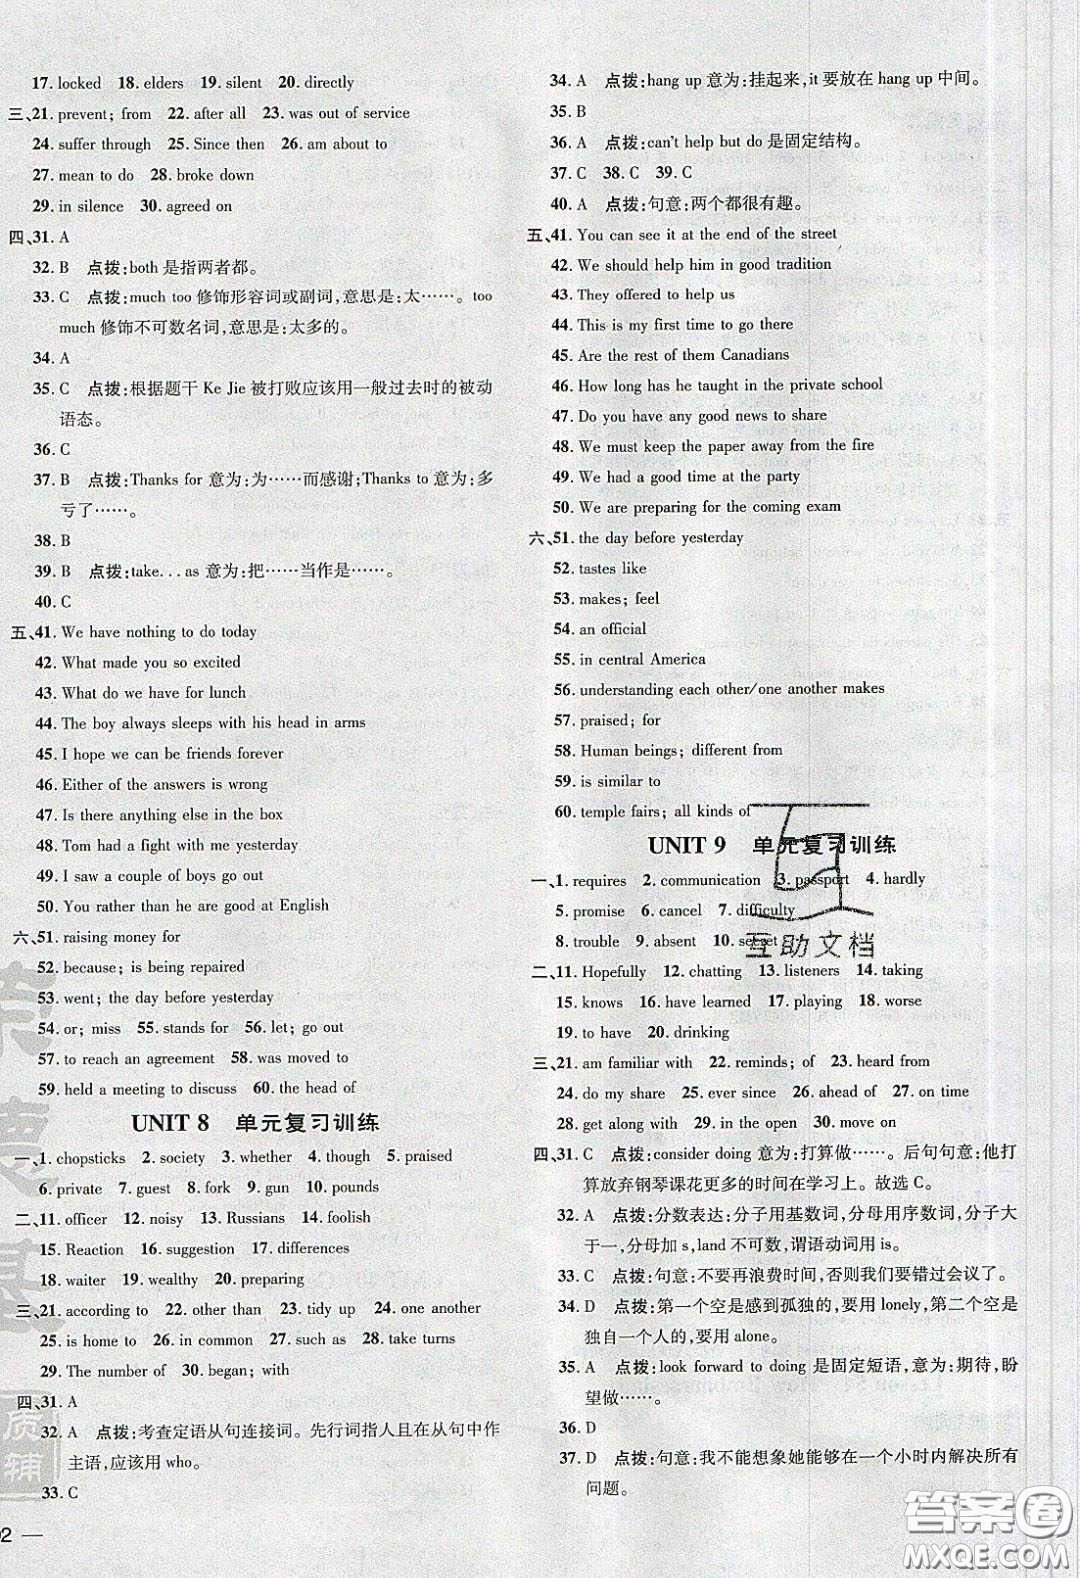 17. locked 18. elders 19. silent 20. directly
三、21. prevent; from 22. after all 23. was out of service
24. suffer through 25. Since then 26. am about to
27. mean to do 28. broke down
29. in silence 30. agreed on
四、31. A
32. B 点拨:both 是指两者都。
33. C 点拨:much too 修饰形容词或副词,意思是:太……。too
much 修饰不可数名词,意思是:太多的。
34. A
35. C 点拨:根据题干 Ke Jie 被打败应该用一般过去时的被动
语态。
36. C
37. B 点拨:Thanks for 意为:为……而感谢;Thanks to 意为:多
亏了……。
38. B
39. B 点拨:take...as 意为:把……当作是……。
40. C
五、41. We have nothing to do today
42. What made you so excited
43. What do we have for lunch
44. The boy always sleeps with his head in arms
45. I hope we can be friends forever
46. Either of the answers is wrong
47. Is there anything else in the box
48. Tom had a fight with me yesterday
49. I saw a couple of boys go out
50. You rather than he are good at English
六、51. raising money for
52. because; is being repaired
53. went; the day before yesterday
54. or; miss 55. stands for 56. let; go out
57. to reach an agreement 58. was moved to
59. held a meeting to discuss 60. the head of
UNIT 8 单元复习训练
一、1. chopsticks 2. society 3. whether 4. though 5. praised
6. private 7. guest 8. fork 9. gun 10. pounds
二、11. officer 12. noisy 13. Russians 14. foolish
15. Reaction 16. suggestion 17. differences
18. waiter 19. wealthy 20. preparing
三、21. according to 22. other than 23. tidy up 24. one another
25. is home to 26. in common 27. such as 28. take turns
29. The number of 30. began; with
四、31. A
32. A 点拨:考查定语从句连接词。先行词指人且在从句中作
主语,应该用 who。
33. C
02 —
34. A 点拨:hang up 意为:挂起来,it 要放在 hang up 中间。
35. B
36. A 点拨:can't help but do 是固定结构。
37. C 38. C 39. C
40. A 点拨:句意:两个都很有趣。
五、41. You can see it at the end of the street
42. We should help him in good tradition
43. They offered to help us
44. This is my first time to go there
45. Are the rest of them Canadians
46. How long has he taught in the private school
47. Do you have any good news to share
48. We must keep the paper away from the fire
49. We had a good time at the party
50. We are preparing for the coming exam
六、51. the day before yesterday
52. tastes like
53. makes; feel
54. an official
55. in central America
56. understanding each other/one another makes
57. praised; for
58. Human beings; different from
59. is similar to
60. temple fairs; all kinds of
UNIT 9 单元复习训练
一、1. requires 2. communication 3. passport 4. hardly
5. promise 6. cancel 7. difficulty
8. trouble 9. absent 10. secret
互助文档
二、11. Hopefully 12. chatting 13. listeners 14. taking
15. knows 16. have learned 17. playing 18. worse
19. to have 20. drinking
三、21. am familiar with 22. reminds; of 23. heard from
24. do my share 25. ever since 26. ahead of 27. on time
28. get along with 29. in the open 30. move on
四、31. C 点拨:consider doing 意为:打算做……。后句句意:他打
算放弃钢琴课花更多的时间在学习上。故选 C。
32. A 点拨:分数表达:分子用基数词,分母用序数词,分子大
于一,分母加 s,land 不可数,谓语动词用 is。
33. C 点拨:句意:不要再浪费时间,否则我们会错过会议了。
34. D 点拨:第一个空是感到孤独的,要用 lonely,第二个空是
独自一个人的,要用 alone。
35. A 点拨:look forward to doing 是固定短语,意为:期待,盼
望做……。
36. D
37. D 点拨:句意:我不能想象她能够在一个小时内解决所有
问题。
质
辅
答案圈
MXQE.COM